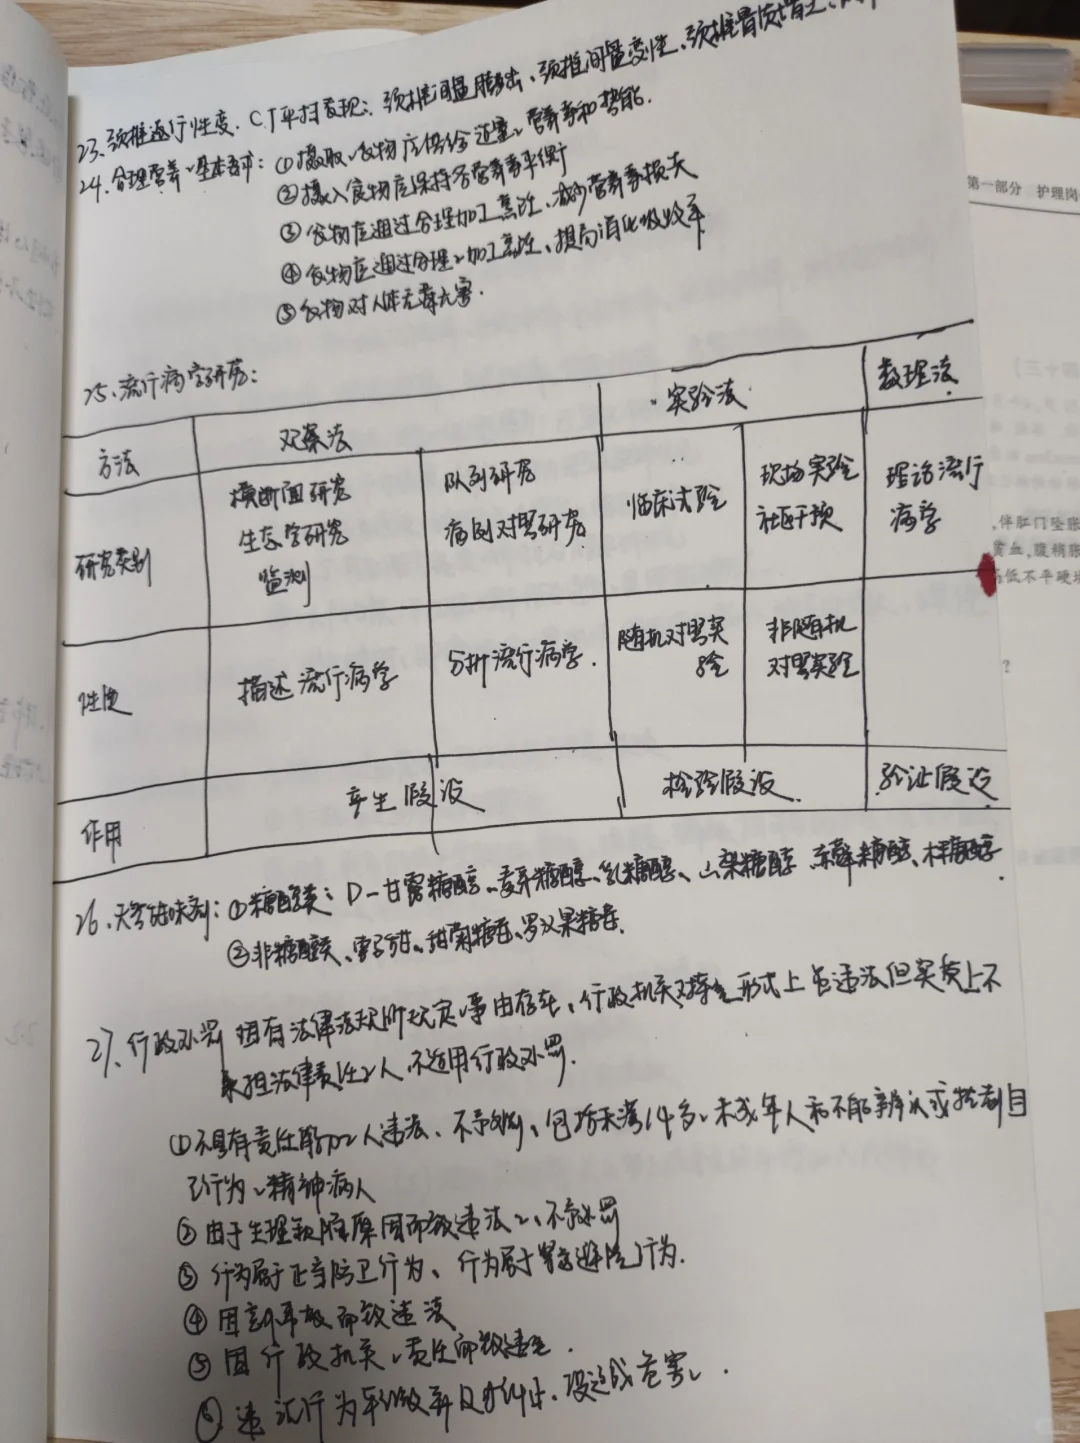 23、颈椎退行性变、CT平扫发现:颈椎间盘膨出、颈椎间盘变性、颈椎骨质增生、
24、合理营养、基本要求:①摄取、食物应供给适量、营养素和热能.
②摄入食物应保持各营养素平衡
③食物应通过合理加工烹饪、减少营养素损失
④食物应通过合理、加工烹饪、提高消化吸收率
⑤食物对人体无毒无害.
25、流行病学研究:
方法 观察法 实验法 数理法
研究类别 横断面研究 生态学研究 监测 队列研究 病例对照研究 临床试验 现场实验 社区干预 理论流行病学
性质 描述流行病学 分析流行病学. 随机对照实验 非随机对照实验
作用 产生假设 检验假设 验证假设
26、天然甜味剂:①糖醇类:D-甘露糖醇、麦芽糖醇、乳糖醇、山梨糖醇、木糖醇
②非糖醇类、甜菊糖苷、罗汉果糖苷.
27、行政处罚 没有法律法规所规定、事由存在、行政机关对 形式上 违法但实质上不
承担法律责任、人、不适用行政处罚.
①不具有责任能力、人违法、不予处罚、包括未满14岁、未成年人和不能辨认或控制自
己行为、精神病人
②由于生理缺陷原因而致违法、、不予处罚
③行为属于正当防卫行为、行为属于紧急避险行为.
④因意外事故而致违法
⑤因行政机关、责任而致违法.
⑥违法行为轻微并及时纠正、没造成危害、.
第一部分 护理岗
四十三]
,伴肛门坠胀
贫血,腹稍胀
高低不平硬块
?